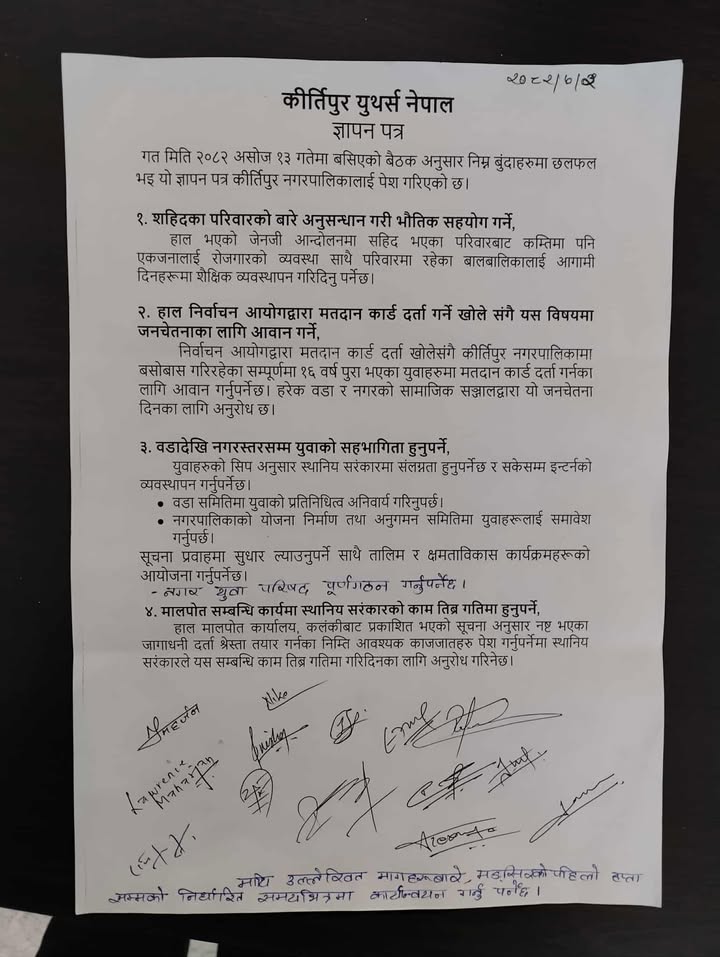 २०८२/७/२
कीर्तिपुर युथर्स नेपाल
ज्ञापन पत्र
गत मिति २०८२ असोज १३ गतेमा बसिएको बैठक अनुसार निम्न बुंदाहरुमा छलफल
भइ यो ज्ञापन पत्र कीर्तिपुर नगरपालिकालाई पेश गरिएको छ।
१. शहिदका परिवारको बारे अनुसन्धान गरी भौतिक सहयोग गर्ने,
हाल भएको जेनजी आन्दोलनमा सहिद भएका परिवारबाट कम्तिमा पनि
एकजनालाई रोजगारको व्यवस्था साथै परिवारमा रहेका बालबालिकालाई आगामी
दिनहरूमा शैक्षिक व्यवस्थापन गरिदिनु पर्नेछ।
२. हाल निर्वाचन आयोगद्वारा मतदान कार्ड दर्ता गर्ने खोले संगै यस विषयमा
जनचेतनाका लागि आवान गर्ने,
निर्वाचन आयोगद्वारा मतदान कार्ड दर्ता खोलेसंगै कीर्तिपुर नगरपालिकामा
बसोबास गरिरहेका सम्पूर्णमा १६ वर्ष पुरा भएका युवाहरुमा मतदान कार्ड दर्ता गर्नका
लागि आवान गर्नुपर्नेछ। हरेक वडा र नगरको सामाजिक सञ्जालद्वारा यो जनचेतना
दिनका लागि अनुरोध छ।
३. वडादेखि नगरस्तरसम्म युवाको सहभागिता हुनुपर्ने,
युवाहरुको सिप अनुसार स्थानिय सरंकारमा संलग्नता हुनुपर्नेछ र सकेसम्म इन्टर्नको
व्यवस्थापन गर्नुपर्नेछ।
• वडा समितिमा युवाको प्रतिनिधित्व अनिवार्य गरिनुपर्छ।
• नगरपालिकाको योजना निर्माण तथा अनुगमन समितिमा युवाहरूलाई समावेश
गर्नुपर्छ।
सूचना प्रवाहमा सुधार ल्याउनुपर्ने साथै तालिम र क्षमताविकास कार्यक्रमहरूको
आयोजना गर्नुपर्नेछ।
- नगर युवा परिषद पूर्णगठन गर्नुपर्नेछ।
४. मालपोत सम्बन्धि कार्यमा स्थानिय सरंकारको काम तिब्र गतिमा हुनुपर्ने,
हाल मालपोत कार्यालय, कलंकीबाट प्रकाशित भएको सूचना अनुसार नष्ट भएका
जागाधनी दर्ता श्रेस्ता तयार गर्नका निम्ति आवश्यक काजजातहरु पेश गर्नुपर्नेमा स्थानिय
सरंकारले यस सम्बन्धि काम तिब्र गतिमा गरिदिनका लागि अनुरोध गरिनेछ।
Niko
Lawrence
Maharjan
माथि उल्लेखित मागहरूबारे मङ्सिरको पहिलो हप्ता
सम्मको निर्धारित समयभित्रमा कार्यान्वयन गर्नु पर्नेछ।